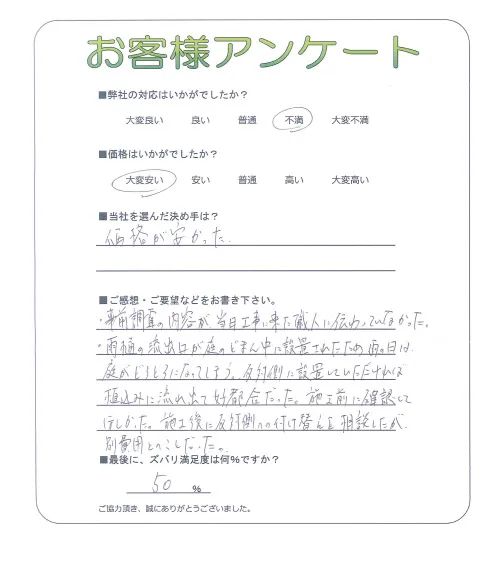 お客様アンケート
■弊社の対応はいかがでしたか？
大変良い 良い 普通 不満 大変不満
■価格はいかがでしたか？
大変安い 安い 普通 高い 大変高い
■当社を選んだ決め手は？
価格が安かった.
■ご感想・ご要望などをお書き下さい。
・事前調査の内容が当日工事に来た職人に伝わっていなかった。
・雨樋の流出口が庭のどまん中に設置されたため雨の日は
庭がどろどろになってしまう。反対側に設置していただければ
植込みに流れ出て好都合だった。施工前に確認して
ほしかった。施工後に反対側への付け替えを相談したが、
別費用とのことだった。
■最後に、ズバリ満足度は何％ですか？
50 %
ご協力頂き、誠にありがとうございました。